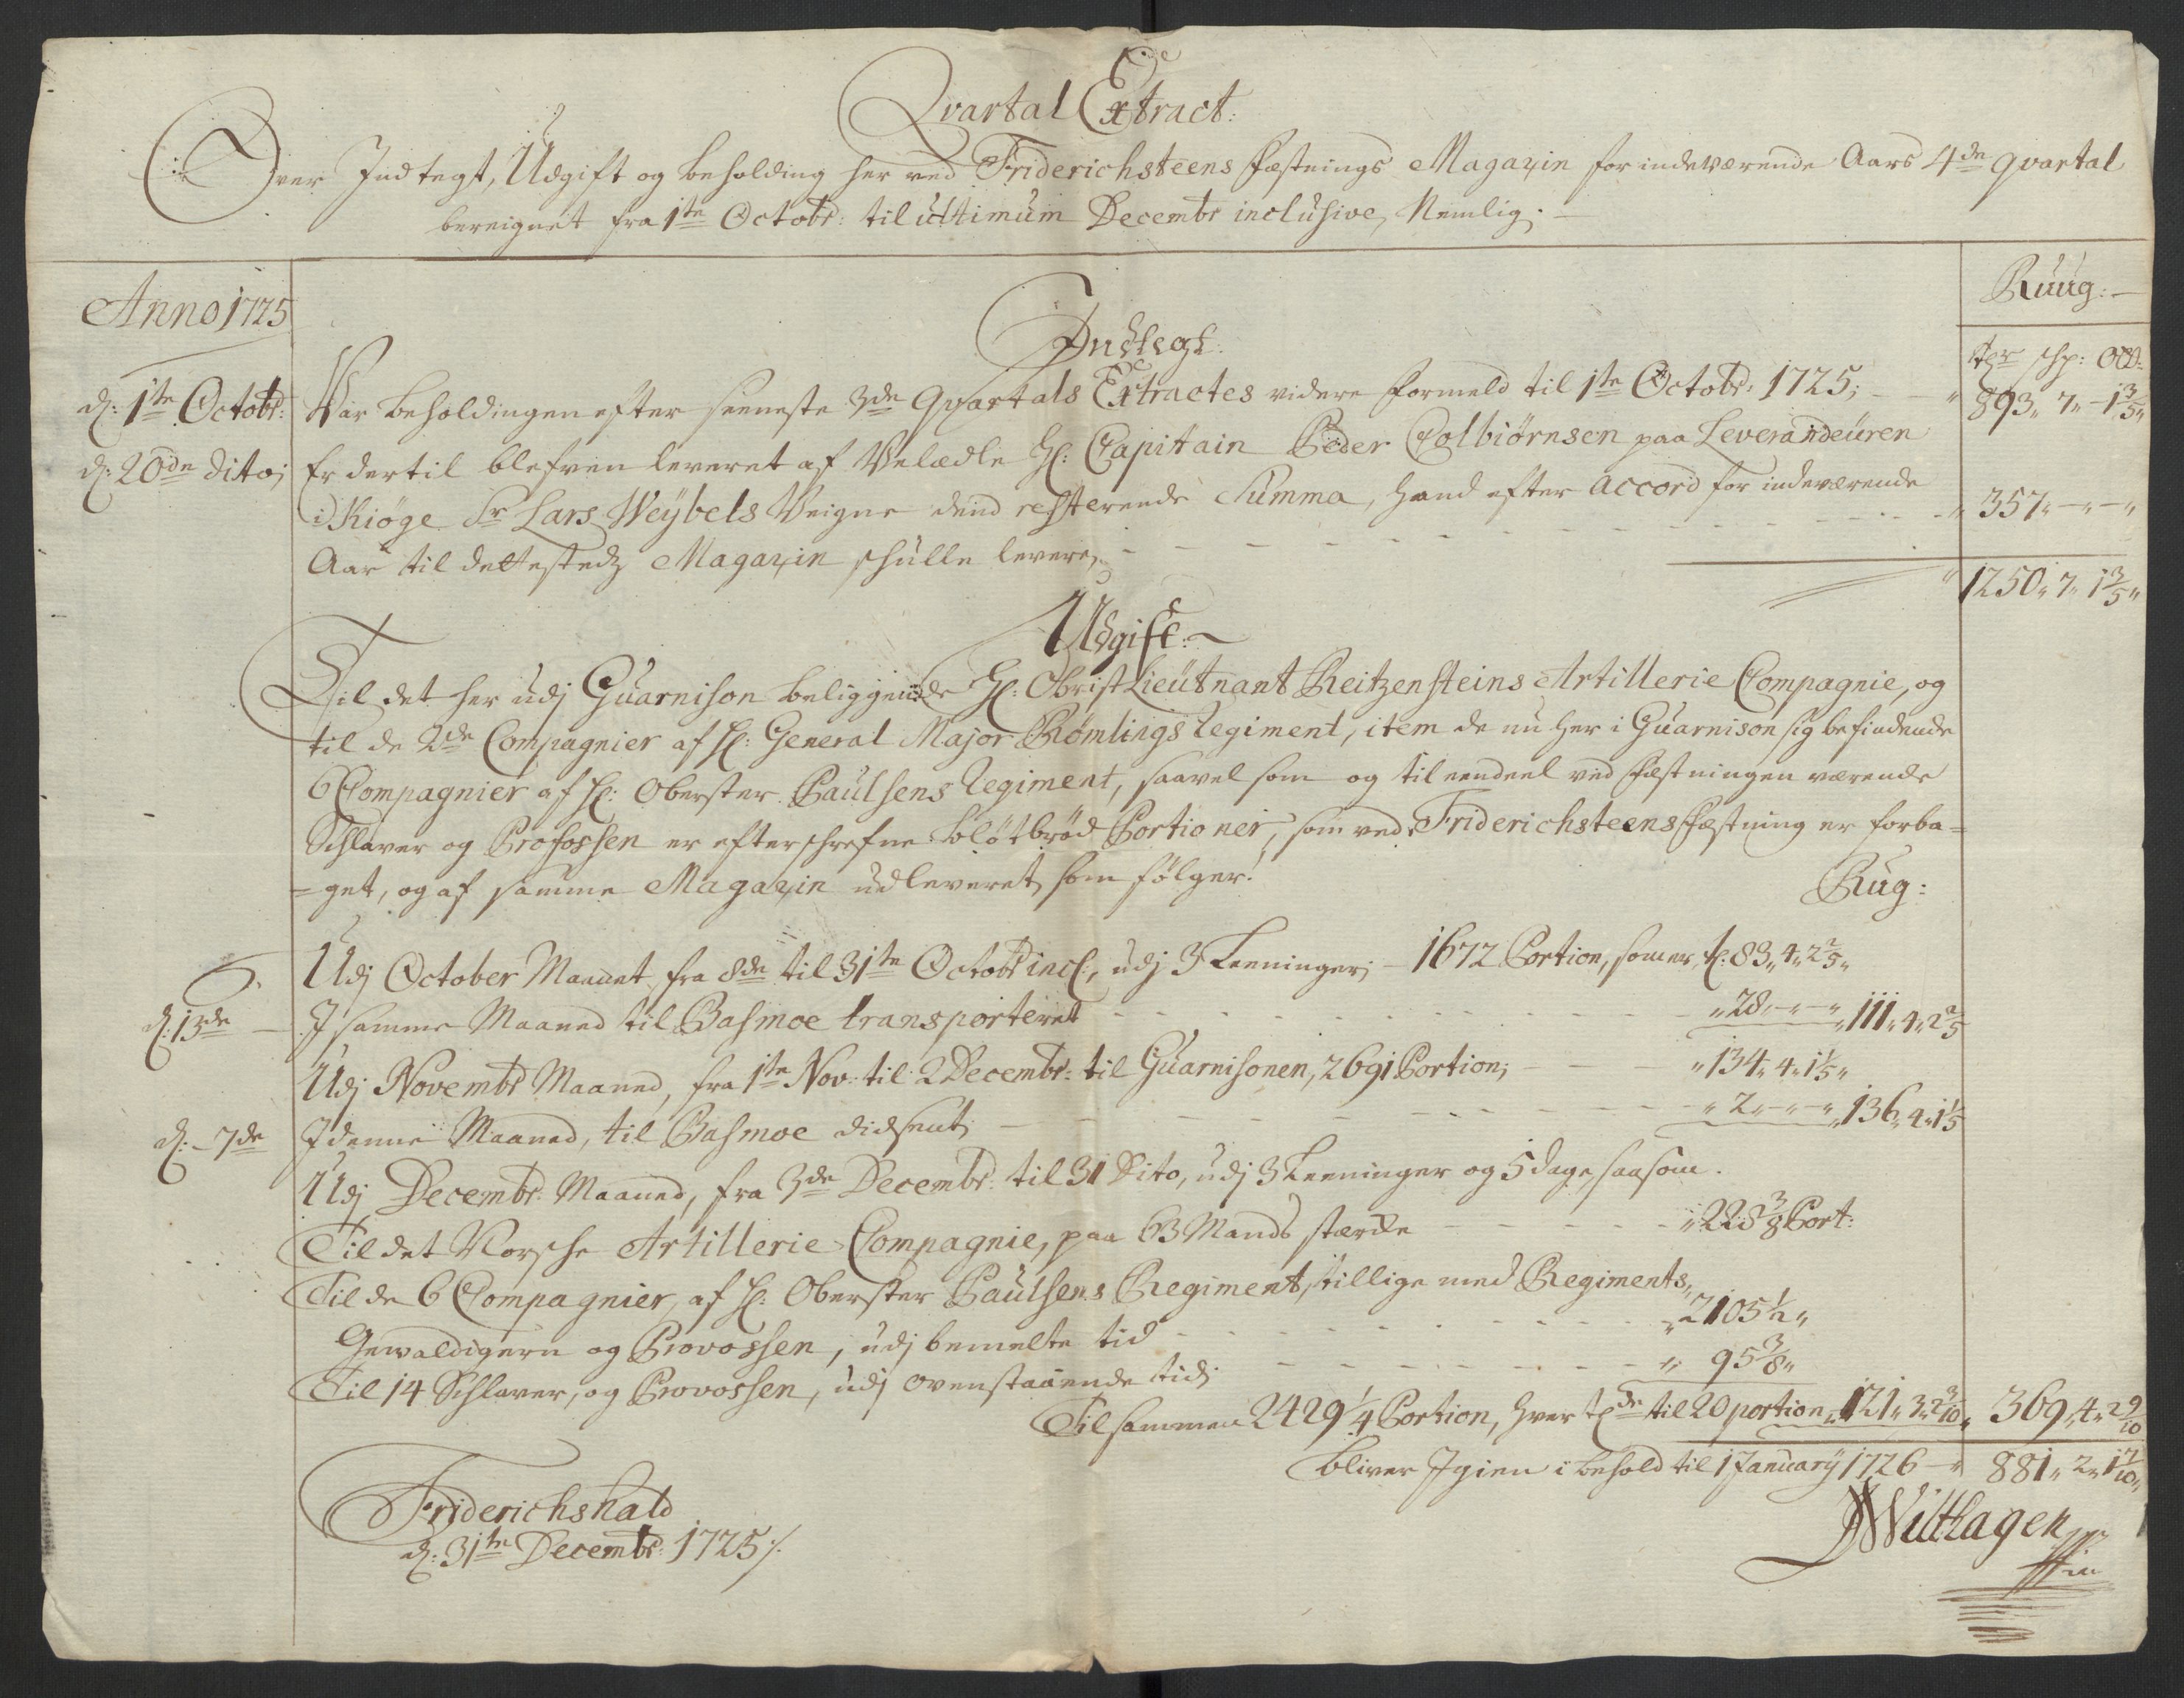 Qvartal Extract:
Over Indtegt, Udgift og beholding her ved Friderichsteens Fæstnings Magazin for indeværende Aars 4de qvartal
bereignet fra 1te Octobr: til ultimum Decembr inclusive, Nemlig:
Anno 1725
Ruug:
Indtegt.
tdr schp: Ott:
d: 1te Octobr: Var beholdingen efter seeneste 3de Qvartals Extractes videre formeld til 1te Octobr: 1725; - - " 893" 7" - 1 3/5"
d: 20de dito; Er dertil blefven leveret af Velædle Hr: Capitain Peder Colbiørnsen paa Leverandeuren
i Kiøge Sr Lars Weybels Veigne dend resterende Summa, hand efter accord for indeværende
Aar til dettestedz Magazin schulle levere, - - - - " 357" - " - "
" 1250" 7" 1 3/5"
Udgift:
Til det her udj Guarnison beliggende Hr: Obrist Lieutnant Reitzensteins Artillerie Compagnie, og
til de 2de Compagnier af Hr: General Major Rømlings Regiment, item de nu her i Guarnison sig befindende
6 Compagnier af Hr: Oberster Paulsens Regiment, saavel som og til eendeel ved Fæstningen værende
Schlaver og Profossen er efterschrefne bløtbrød Portioner, som ved Friderichsteens Fæstning er forba=
=get, og af samme Magazin udleveret som følger!
Rug:
Udj October Maanet, fra 8de til 31te Octobr incl:, udj 3 Leeninger; - 1672 Portion, som er, tr: 83" 4" 2 2/5"
d: 13de - I samme Maaned til Basmoe transporteret - - - - " 28" - " - " 111" 4" 2 2/5
Udj Novembr Maaned, fra 1te Nov: til 2 Decembr: til Guarnisonen, 2691 Portion; - - - " 134" 4" 1 1/5"
d: - 7de I denne Maaned, til Basmoe didsent; - - - - " 2" - " - " 136" 4" 1 1/5
Udj Decembr: Maaned, fra 3de Decembr: til 31 Dito, udj 3 Leeninger og 5 dage, saasom.
Til det Norsche Artillerie Compagnie, paa 63 Mands stærke - - - - " 228 3/8 Port:
Til de 6 Compagnier, af Hr: Oberster Paulsens Regiment, tillige med Regiments
Gewaldigern og Provossen, udj bemelte tid - - - - " 2105 1/2"
Til 14 Schlaver, og Provossen, udj ovenstaaende tid; - - - - " 95 3/8"
Tilsammen 2429 1/4 Portion, hver tde til 20 portion, 121" 3" 2 3/10" 369" 4" 2 9/10
bliver Igien i behold til 1 January 1726 - " 881" 2" 1 7/10"
Friderichshald
d: 31te Decembr: 1725 ./.